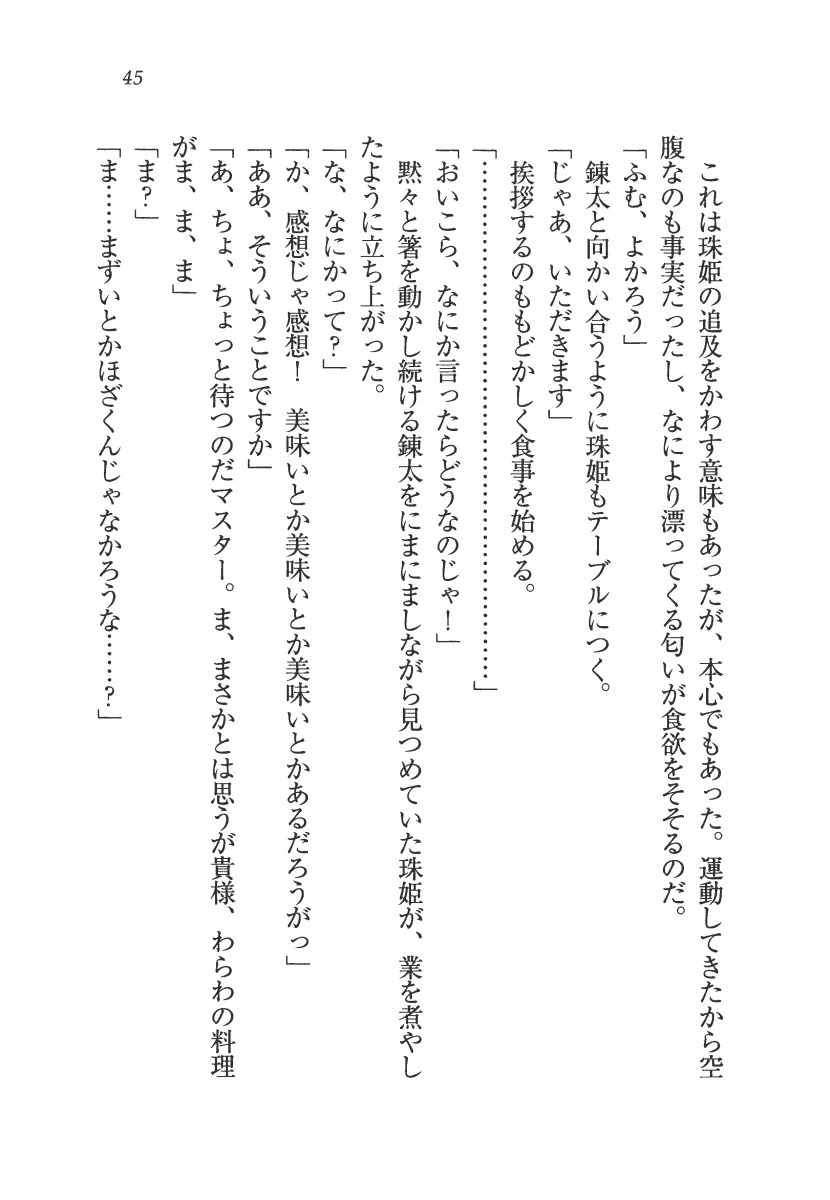 45
　これは珠姫の追及をかわす意味もあったが、本心でもあった。運動してきたから空
腹なのも事実だったし、なにより漂ってくる匂いが食欲をそそるのだ。
「ふむ、よかろう」
　錬太と向かい合うように珠姫もテーブルにつく。
「じゃあ、いただきます」
　挨拶するのももどかしく食事を始める。
「……………………………………………………」
「おいこら、なにか言ったらどうなのじゃ！」
　黙々と箸を動かし続ける錬太をにまにましながら見つめていた珠姫が、業を煮やし
たように立ち上がった。
「な、なにかって？」
「か、感想じゃ感想！　美味いとか美味いとか美味いとかあるだろうがっ」
「ああ、そういうことですか」
「あ、ちょ、ちょっと待つのだマスター。ま、まさかとは思うが貴様、わらわの料理
がま、ま、ま」
「ま？」
「ま……まずいとかほざくんじゃなかろうな……？」